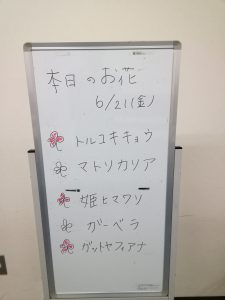 本日のお花
6/21(金)
トルコキキョウ
マトリカリア
姫ヒマワリ
ガーベラ
グットヤフィアナ